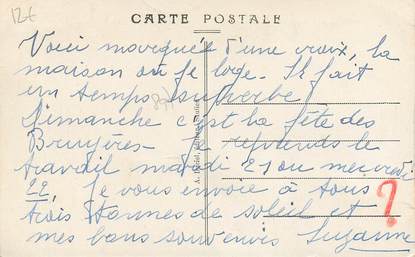 12€
CARTE POSTALE
Voici marquée d'une croix, la
maison où je loge. Il fait
un temps souperbe
Dimanche c'est la fête des
Bruyères - Je reprends le
travail mardi 21 ou mercredi
22, Je vous envoie à tous
trois tonnes de soleil et ?
mes bons souvenirs Suzanne